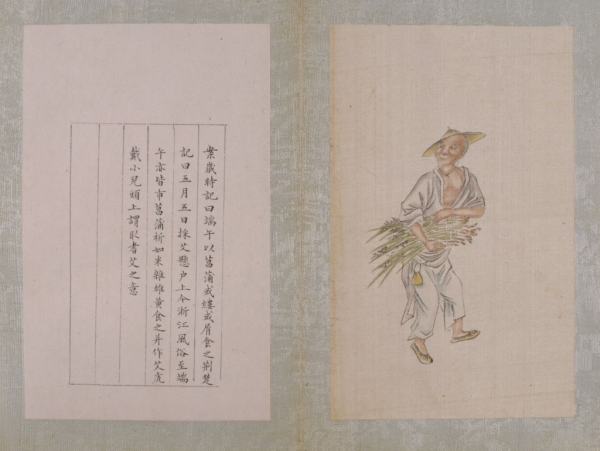 案歲時記曰端午以菖蒲或縷或屑食之荊楚
記曰五月五日採艾懸戶上今浙江風俗至端
午亦皆市菖蒲析如米雜雄黃食之并作艾虎
戴小兒頭上謂取耆艾之意